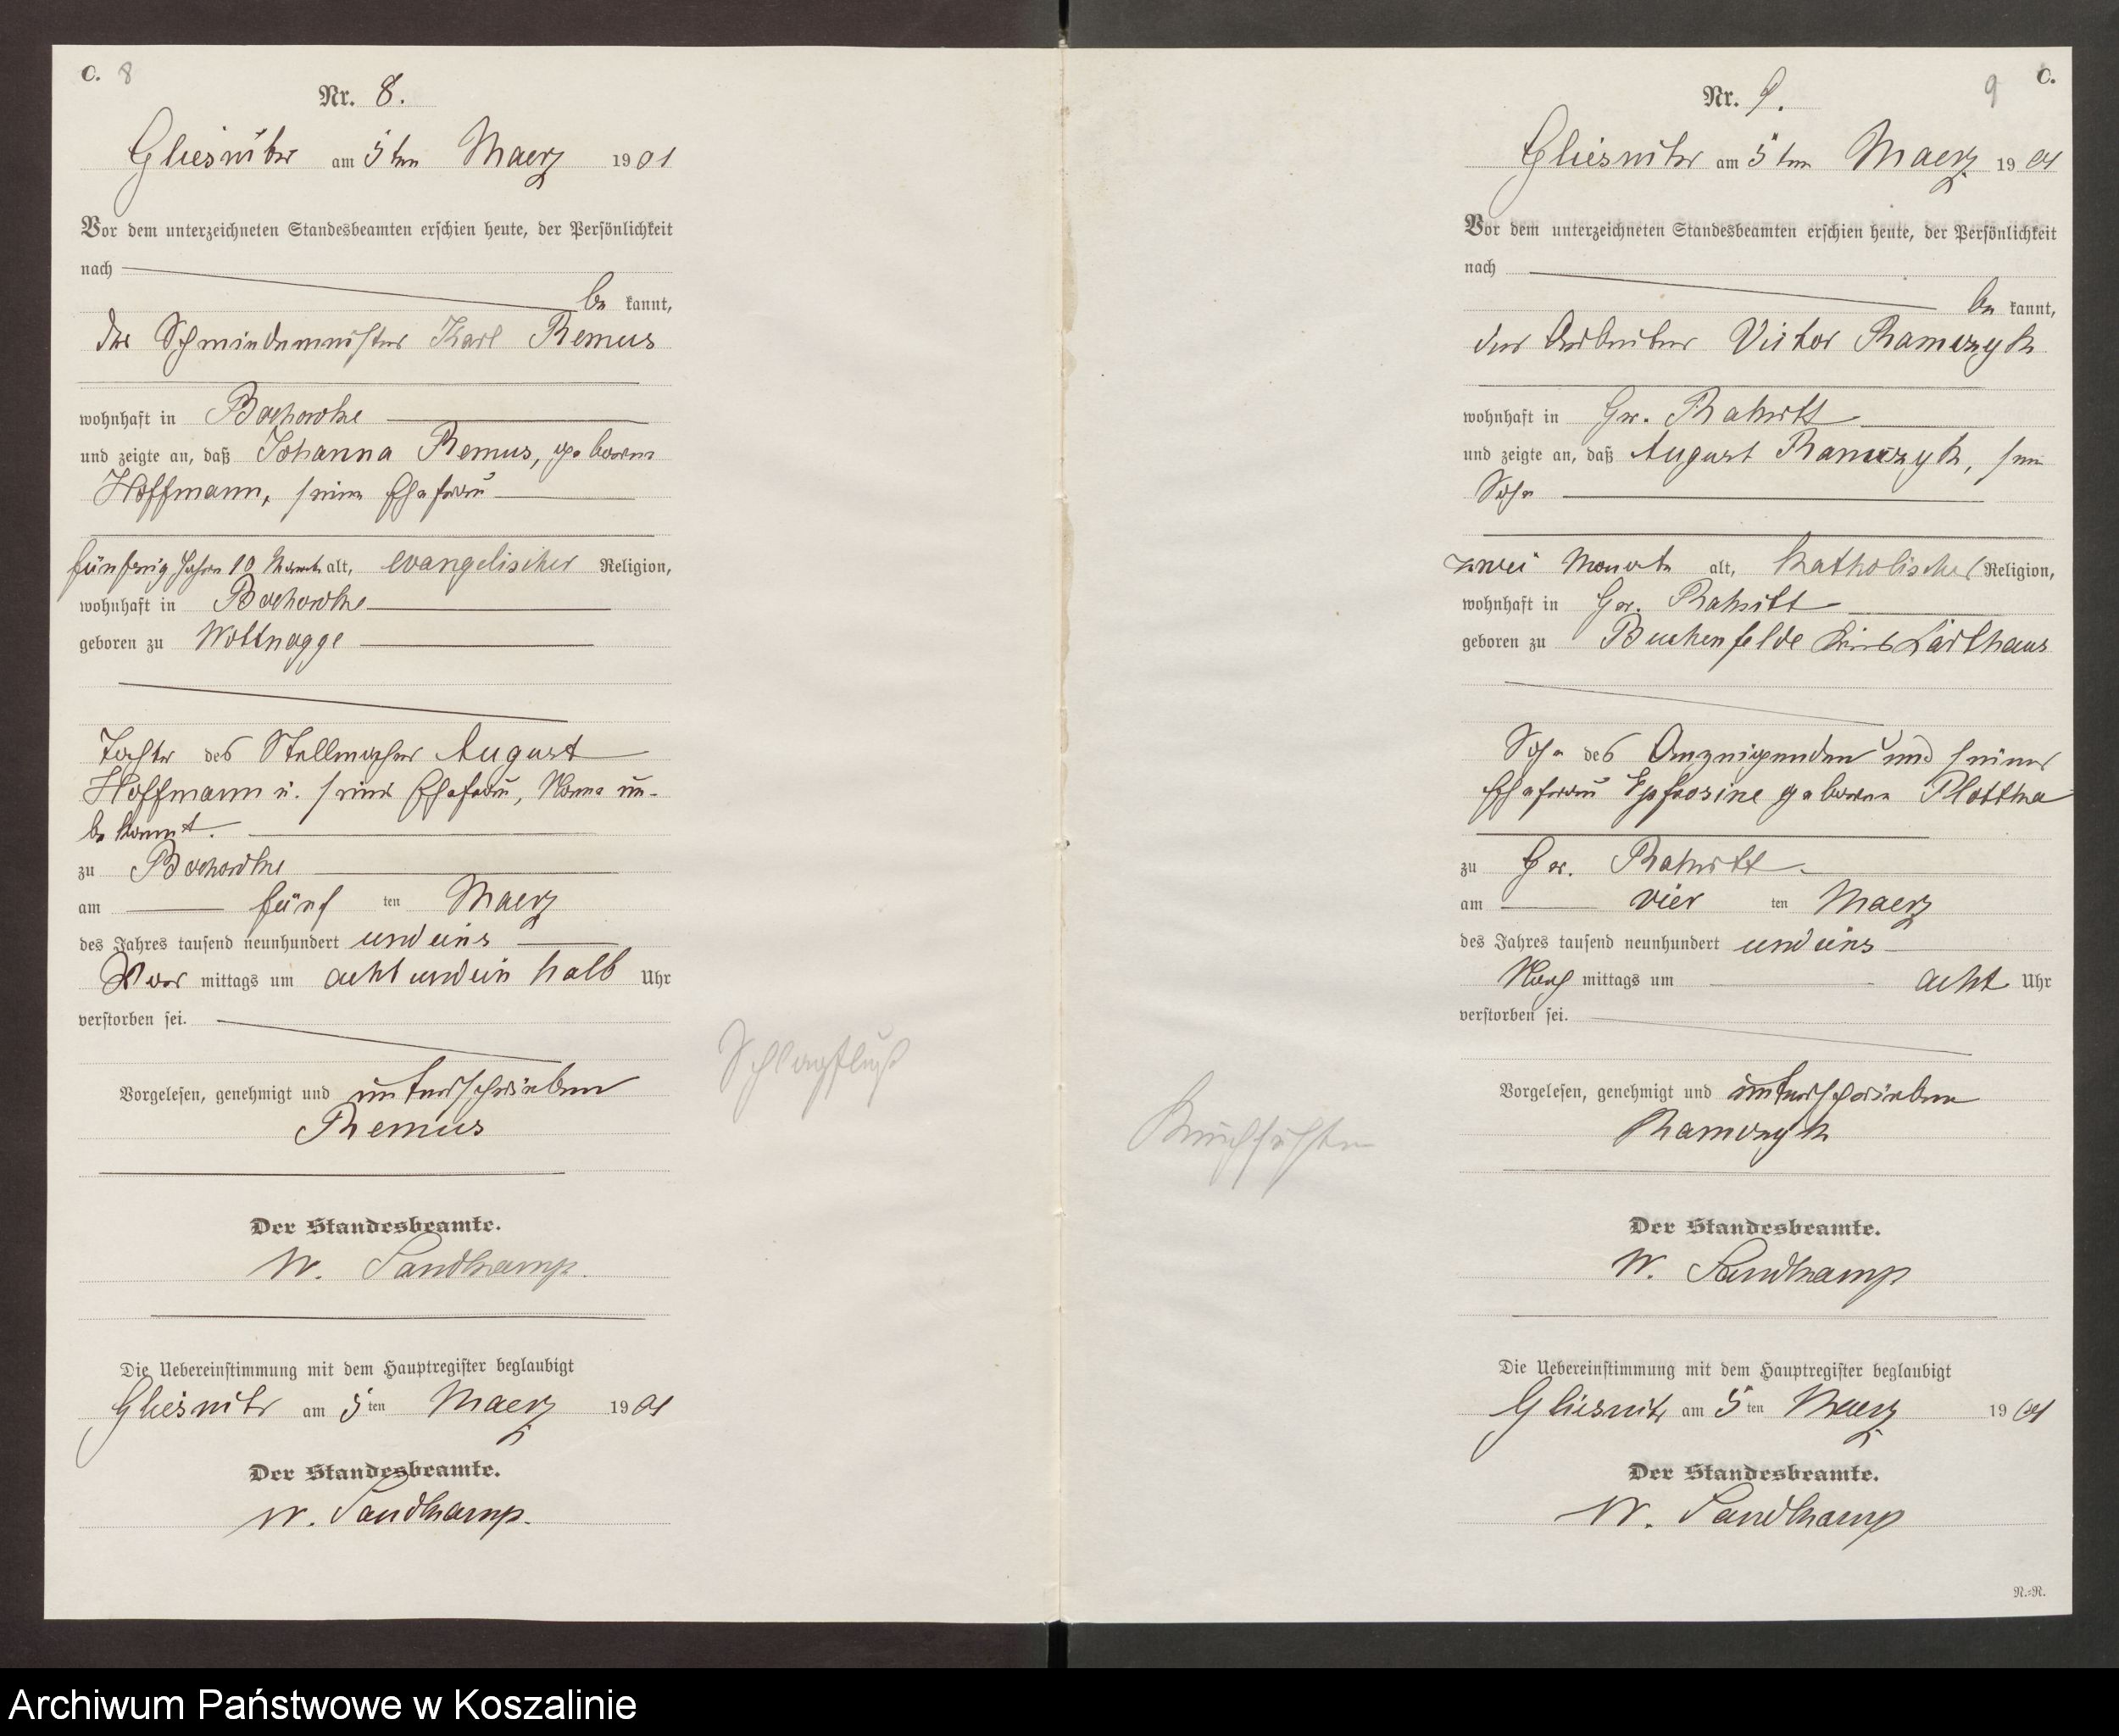 C. 8
Nr. 8.
Gliesnitz am 5ten Maerz 1901
Vor dem unterzeichneten Standesbeamten erschien heute, der Persönlichkeit
nach
be kannt,
der Schmiedemeister Karl Remus
wohnhaft in Bochowke
und zeigte an, daß Johanna Remus, geborne
Hoffmann, seine Ehefrau
fünfzig Jahre 10 Monate alt, evangelischer Religion,
wohnhaft in Bochowke
geboren zu Wottnogge
Tochter des Stellmacher August
Hoffmann u. seiner Ehefrau, Name un-
bekannt.
zu Bochowke
am fünf ten Maerz
des Jahres tausend neunhundert und eins
Vor mittags um acht und ein halb Uhr
verstorben sei.
Schlagfluß
Vorgelesen, genehmigt und unterschrieben
Remus
Der Standesbeamte.
W. Sandkamp.
Die Uebereinstimmung mit dem Hauptregister beglaubigt
Gliesnitz am 5ten Maerz 1901
Der Standesbeamte.
W. Sandkamp.
9 C.
Nr. 9.
Gliesnitz am 5ten Maerz 1901
Vor dem unterzeichneten Standesbeamten erschien heute, der Persönlichkeit
nach
be kannt,
der Arbeiter Victor Ramczyk
wohnhaft in Gr. Rakitt
und zeigte an, daß August Ramczyk, sein
Sohn
zwei Monate alt, katholischer Religion,
wohnhaft in Gr. Rakitt
geboren zu Buchenfelde Kreis Karthaus
Sohn des Anzeigenden und seiner
Ehefrau geborne Plottka
zu Gr. Rakitt
am vier ten Maerz
des Jahres tausend neunhundert und eins
Nach mittags um acht Uhr
verstorben sei.
Vorgelesen, genehmigt und unterschrieben
Ramczyk
Der Standesbeamte.
W. Sandkamp
Die Uebereinstimmung mit dem Hauptregister beglaubigt
Gliesnitz am 5ten Maerz 1901
Der Standesbeamte.
W. Sandkamp
N.-N.
Archiwum Państwowe w Koszalinie